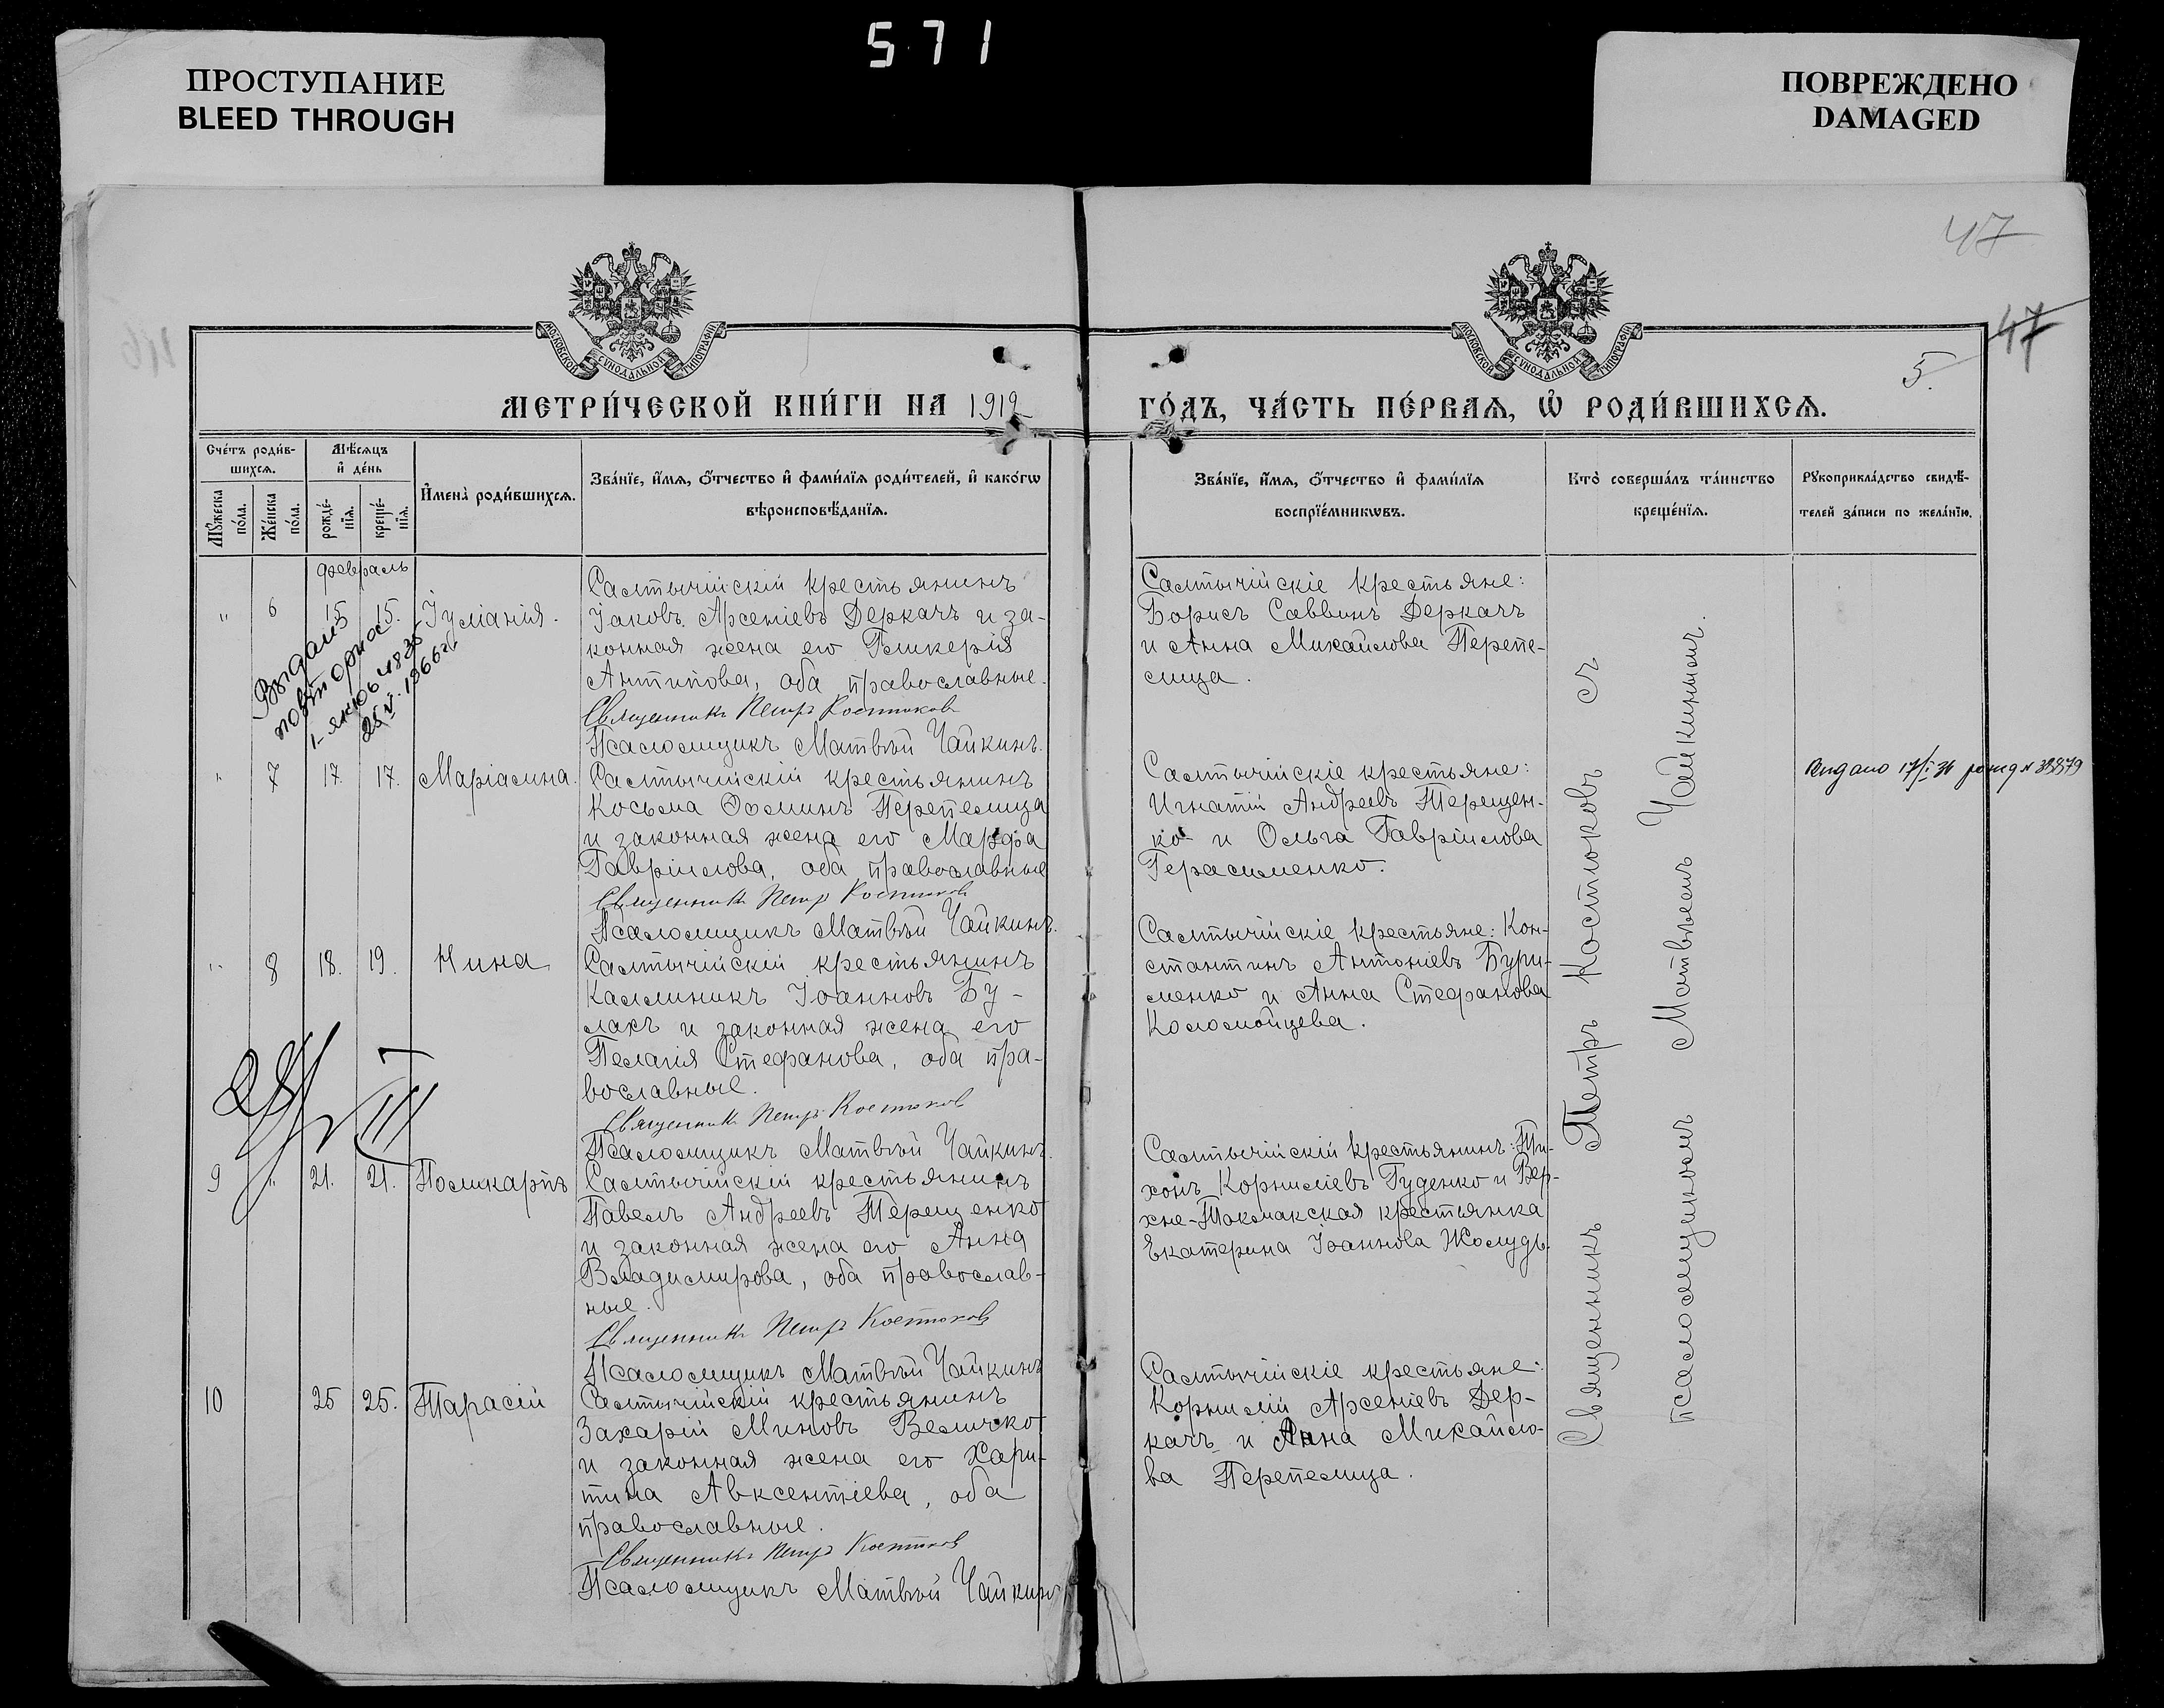 571
ПРОСТУПАНИЕ
BLEED THROUGH
ПОВРЕЖДЕНО
DAMAGED
47
47
5.
МОСКОВСКОЙ СУНОДАЛЬНОЙ ТИПОГРАФІИ
МОСКОВСКОЙ СУНОДАЛЬНОЙ ТИПОГРАФІИ
МЕТРИ́ЧЕСКОЙ КНИ́ГИ НА 1912
ГО́ДЪ, ЧА́СТЬ ПЕ́РВАѦ, Ѿ РОДИ́ВШИХСѦ.
Сче́тъ роди́в-
шихсѧ.
Мѣ́сѧцъ
и҆ де́нь
Мꙋ́жеска
по́ла.
Же́нска
по́ла.
рожде́-
нїѧ.
креще́-
нїѧ.
И҆мена̀ роди́вшихсѧ.
Зва́нїе, и҆́мѧ, ѻ҆́тчество и҆ фами́лїѧ роди́телей, и҆ како́гѡ
вѣроисповѣ́данїѧ.
Зва́нїе, и҆́мѧ, ѻ҆́тчество и҆ фами́лїѧ
воспрїе́мникѡвъ.
Кто̀ соверша́лъ та́инство
креще́нїѧ.
Рꙋкоприкла́дство свидѣ́-
телей за́писи по жела́нїю.
февраль
" 6 15 15. Іуліанія.
Салтычійскій крестьянинъ
Іаковъ Арсеніевъ Деркачъ и за-
конная жена его Гликерія
Антипова, оба православные.
Священникъ Петръ Костюковъ
Псаломщикъ Матвѣй Чайкинъ.
Салтычійскіе крестьяне:
Борисъ Саввинъ Деркачъ
и Анна Михайлова Перепе-
лица.
Выдано
повторное
1-ЯЮ
1966 г.
" 7 17 17. Маріамна.
Салтычійскій крестьянинъ
Косьма Ѳоминъ Перепелица
и законная жена его Марѳа
Гавріилова, оба православные
Священникъ Петръ Костюковъ
Псаломщикъ Матвѣй Чайкинъ.
Салтычійскіе крестьяне:
Игнатій Андреевъ Терещен-
ко и Ольга Гавріилова
Герасименко.
Видано 17/I 36
" 8 18. 19. Нина
Салтычійскій крестьянинъ
Каллиникъ Іоанновъ Бу-
лахъ и законная жена его
Пелагія Стефанова, оба пра-
вославные.
Священникъ Петръ Костюковъ
Псаломщикъ Матвѣй Чайкинъ.
Салтычійскіе крестьяне: Кон-
стантинъ Антоніевъ Бури-
менко и Анна Стефанова
Коломойцева.
9 " 21. 21. Поликарпъ
Салтычійскій крестьянинъ
Павелъ Андреевъ Терещенко
и законная жена его Анна
Владимирова, оба православ-
ные.
Священникъ Петръ Костюковъ
Псаломщикъ Матвѣй Чайкинъ
Салтычійскій крестьянинъ: Ти-
хонъ Корниліевъ Гуденко и Вер-
хне-Токмакская крестьянка
Екатерина Іоаннова Жолудь.
10 25 25. Тарасій
Салтычійскій крестьянинъ
Захарій Миновъ Величко
и законная жена его Хари-
тина Авксентіева, оба
православные.
Священникъ Петръ Костюковъ
Псаломщикъ Матвѣй Чайкинъ
Салтычійскіе крестьяне:
Корнилій Арсеніевъ Дер-
качъ и Анна Михайло-
ва Перепелица.
Священникъ Петръ Костюковъ съ
псаломщикомъ Матвѣемъ Чайкинымъ.